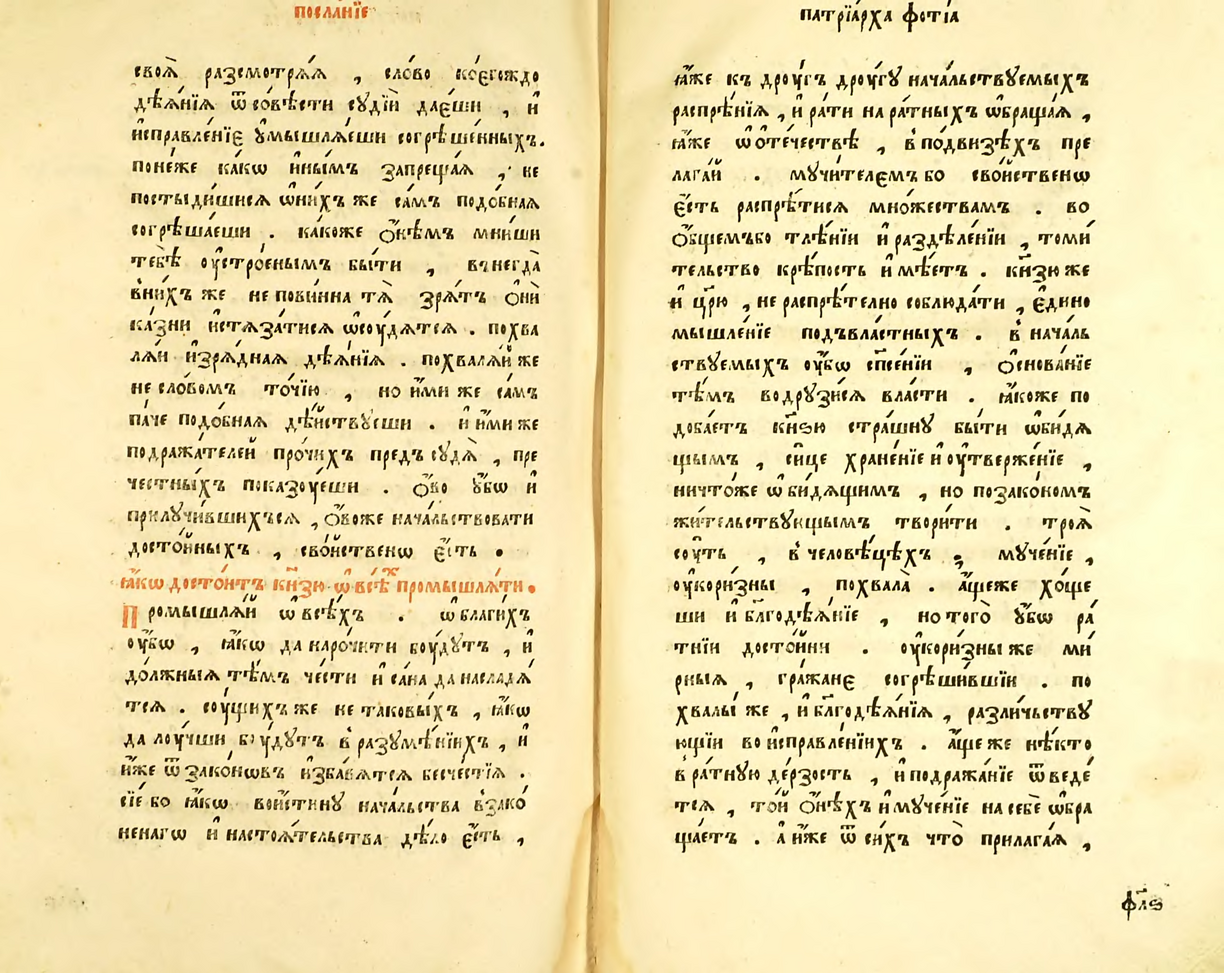 посланїе
своѧ̀ разсмотрѧ́ѧ , сло́во коегѡ́ждо
дѣѧ́нїѧ ѿ со́вѣсти сꙋдїи̑ дае́ши , и҆
и҆справле́нїе ᲂу҆мышлѧ́еши согрѣше́нныхъ.
поне́же ка́кѡ и҆ны̑мъ запреща́ѧ , не
постыди́шисѧ ѡ҆ ни́хъ же са́мъ подо́бнаѧ
согрѣша́еши . ка́коже о҆нѣ́мъ мни́ши
тебѣ̀ оу҆стро́енымъ бы́ти , внегда̀
в ни́хъ же непови́нна тѧ̀ зрѧ́тъ о҆нѝ
ка́зни и҆стѧза́тисѧ ѡ҆сꙋ́дѧтсѧ . похва
лѧ́й и҆зрѧ́днаѧ дѣѧ́нїѧ . похвалѧ́й же
не сло́вомъ то́чїю , но и҆́ми же са́мъ
па́че подо́бнаѧ дѣ́йствꙋеши . и҆ и҆́ми же
подража́телей про́чихъ предъ сꙋдѧ̀ , пре
че́стныхъ показꙋ́еши . о҆́во ᲂу҆́бѡ и҆
прилꙋчи́вшихъсѧ , о҆́воже нача́льствовати
досто́йныхъ , сво́йственѡ е҆́сть .
ꙗ҆́кѡ достои́тъ кн҃зю ѡ҆ всѣ́хъ промышлѧ́ти .
Промышлѧ́й ѡ҆ всѣ́хъ . ѡ҆ благи́хъ
оу҆́бѡ , ꙗ҆́кѡ да наро́чити бꙋ́дꙋтъ , и҆
до́лжныѧ тѣ́мъ че́сти и҆ са́на да насладѧ́
тсѧ . сꙋ́щихъ же не таковы́хъ , ꙗ҆́кѡ
да лꙋ́чши бꙋ́дꙋтъ в̾ разꙋмѣ́нїихъ , и҆
и҆́же ѿ зако́новъ и҆зба́вѧтсѧ бесче́стїѧ .
сїе́ бо ꙗ҆́кѡ вои́стинꙋ нача́льства в̾ зако́
ненагѡ и҆ настоѧ́тельства дѣ́ло е҆́сть ,
патрїа́рха фо́тїа
ꙗ҆́же къ дрꙋ́гъ дрꙋ́гꙋ нача́льствꙋемыхъ
распрѣ́нїѧ , и҆ ра́ти на ра́тныхъ ѡ҆браща́ѧ ,
ꙗ҆́же ѡ҆ оте́чествѣ , в̾ по́двизѣхъ пре
лага́й . мꙋчи́телемъ бо сво́йственѡ
е҆́сть распрѣ́тисѧ мно́жествамъ . во
о҆́бщемъ бо тлѣ́нїи и҆ раздѣле́нїи , томи́
тельство крѣ́пость и҆мѣ́етъ . кн҃зю же
и҆ цр҃ю , не распрѣ́телно соблюда́ти , е҆ди́но
мышле́нїе подъвла́стныхъ . в̾ нача́ль
ствꙋемыхъ оу҆́бѡ сп҃се́нїи , о҆снова́нїе
тѣ́мъ водрꙋзи́сѧ вла́сти . ꙗ҆́коже по
доба́етъ кн҃зю стра́шнꙋ бы́ти ѡ҆би́дѧ
щымъ , си́це хране́нїе и҆ оу҆твержє́нїе ,
ничто́же ѡ҆би́дѧщимъ , но по зако́номъ
жи́тельствꙋющымъ твори́ти . троѧ̀
сꙋ́ть , в̾ человѣ́цѣхъ , мꙋче́нїе ,
оу҆кори́зны , похвала̀ . а҆́щеже хо́ще
ши и҆ бл҃годѣѧ́нїе , но того̀ ᲂу҆́бѡ ра́
тнїи досто́йни . оу҆кори́зны же ми́
рныѧ , гра́жане согрѣши́вшїи . по
хвалы́ же , и҆ бл҃годѣѧ́нїѧ , разли́чьствꙋ
ющїи во и҆справле́нїихъ . а҆́ще же нѣ́кто
в̾ ра́тнꙋю де́рзость , и҆ подража́нїе ѿведе́
тсѧ , то́й о҆нѣ́хъ и҆ мꙋче́нїе на себѐ ѡ҆бра
ща́етъ . а҆ и҆́же ѿ си́хъ что̀ прилага́ѧ ,
фл҃ѕ